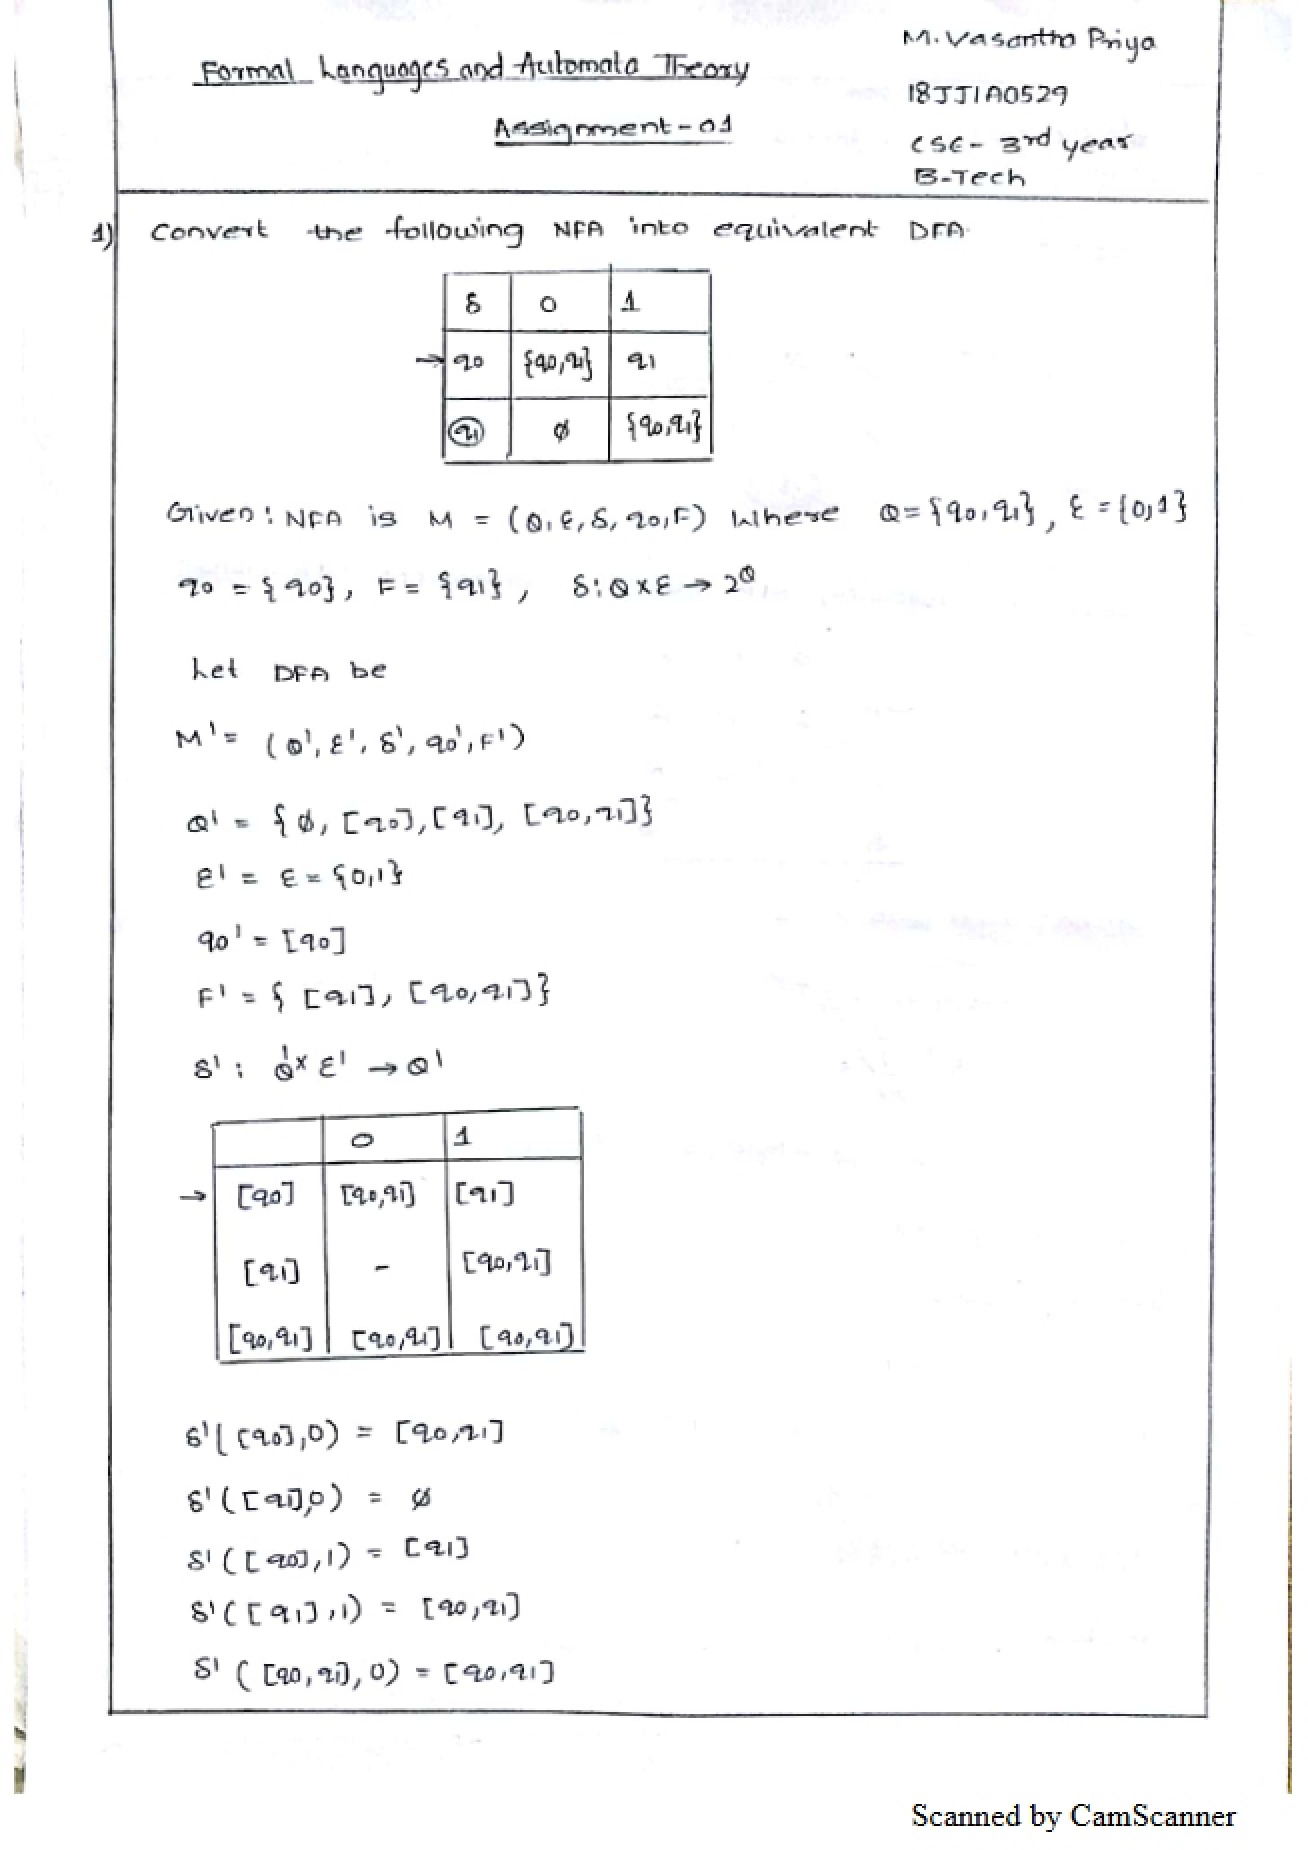 M. Vasantha Priya
Formal Languages and Automata Theory
18JJ1A0529
Assignment-01
CSE- 3rd year
B-Tech
1) Convert the following NFA into equivalent DFA.
δ 0 1
→ q0 {q0,q1} q1
q1 ø {q0,q1}
Given: NFA is M = (Q, Ɛ, δ, q0, F) Where Q = {q0, q1}, Ɛ = {0,1}
q0 = {q0}, F = {q1}, δ: Q x Ɛ → 2^Q
Let DFA be
M' = (Q', Ɛ', δ', q0', F')
Q' = {ø, [q0], [q1], [q0, q1]}
Ɛ' = Ɛ = {0,1}
q0' = [q0]
F' = { [q1], [q0, q1]}
δ' : Q' x Ɛ' → Q'
0 1
→ [q0] [q0,q1] [q1]
[q1] - [q0,q1]
[q0,q1] [q0,q1] [q0,q1]
δ'([q0],0) = [q0,q1]
δ'([q1],0) = ø
δ'([q0],1) = [q1]
δ'([q1],1) = [q0,q1]
δ'([q0,q1],0) = [q0,q1]
Scanned by CamScanner